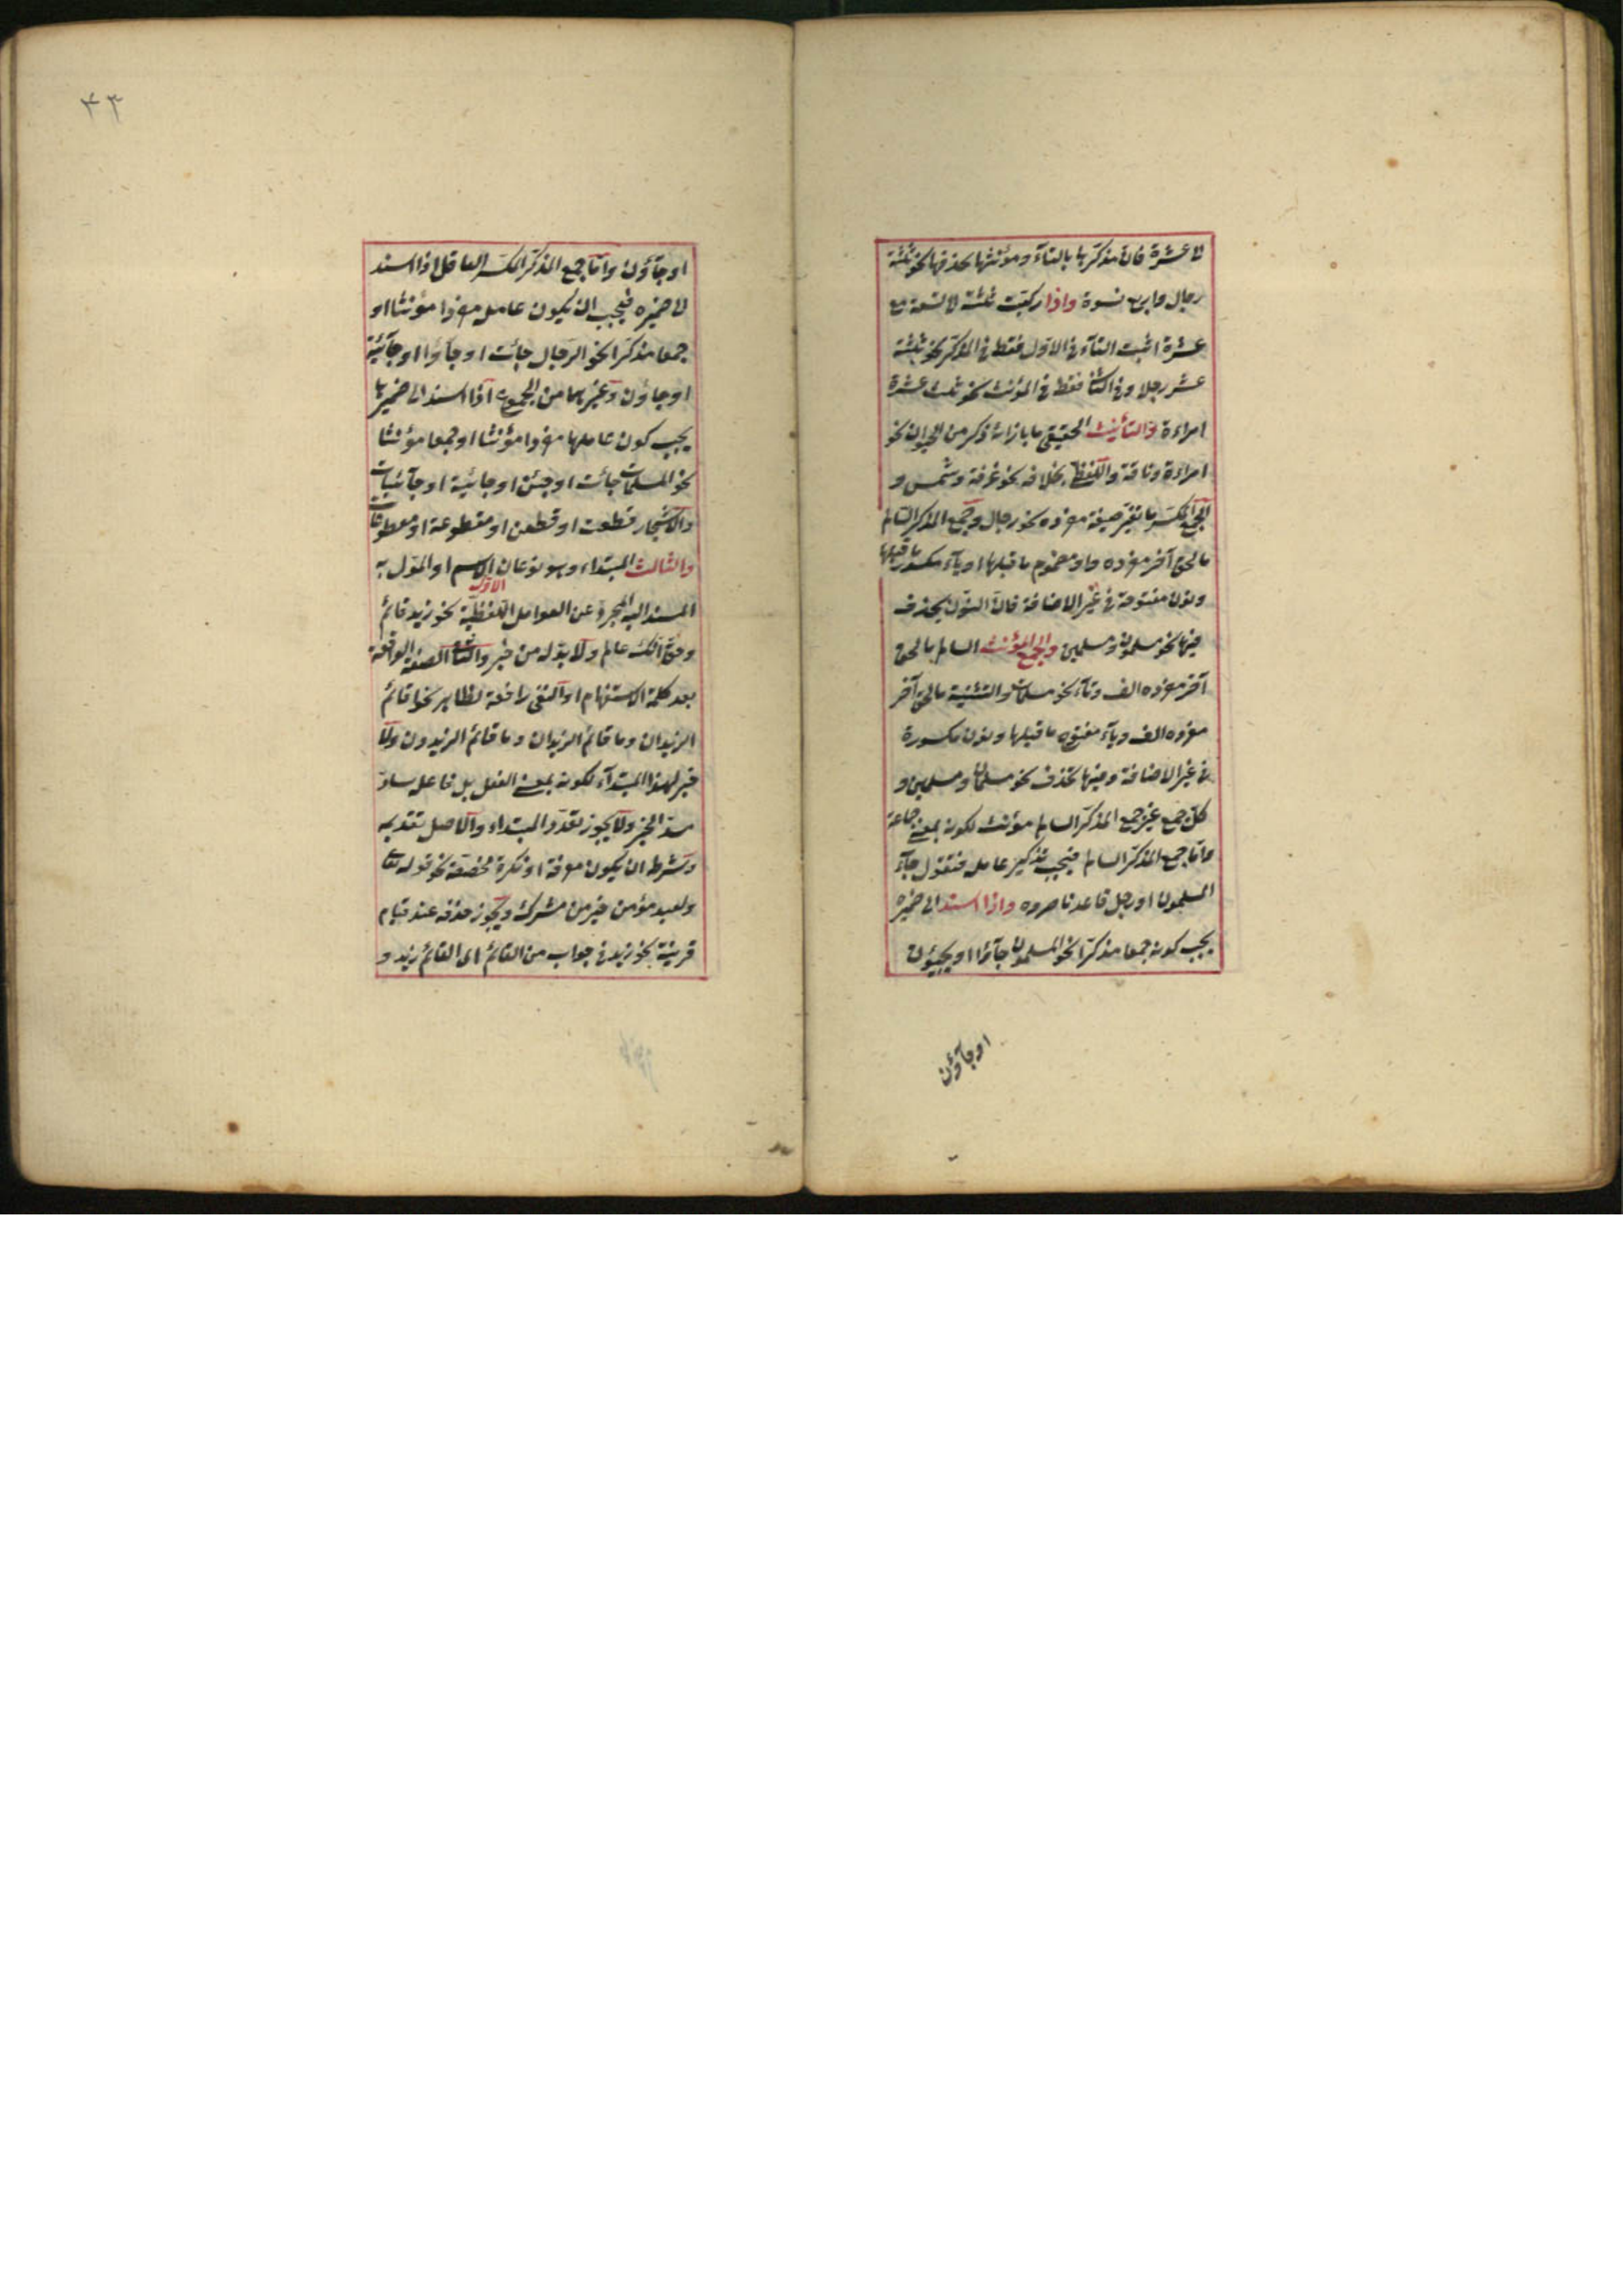 الى عشرة فان مذكرها بالتاء ومؤنثها بحذفها نحو ثلثة
رجال واربع نسوة واذا ركبت ثلثة الى تسعة مع
عشرة اثبت التاء فى الاول فقط فى المذكر نحو ثلثة
عشر رجلا وفى الثانى فقط فى المؤنث نحو ثلث عشرة
امراءة والتأنيث الحقيقى ما بازائه ذكر من الحيوان نحو
امراءة وناقة واللفظى بخلافه نحو غرفة وشمس و
الجمع المكسر ما تغير صيغة مفرده نحو رجال وجمع المذكر السالم
ما لحق آخر مفرده واو مضموم ما قبلها او ياء مكسور ما قبلها
ونون مفتوحة فى غير الاضافة فان النون يحذف
فيها نحو مسلمون ومسلمين والجمع المؤنث السالم ما لحق
آخر مفرده الف وتاء نحو مسلمات والتثنية ما لحق آخر
مفرده الف وياء مفتوح ما قبلها ونون مكسورة
فى غير الاضافة وفيها تحذف نحو مسلمان ومسلمين و
كل جمع غير جمع المذكر السالم مؤنث لكونه بمعنى جماعة
واما جمع المذكر السالم فيجب تذكير عامله فتقول جاء
المسلمون او رجل قاعد ناصروه واذا اسند الى ضميره
يجب كونه جمعا مذكرا نحو المسلمون جاؤا او يجيئون
او جاؤن
٤٣
او جاؤن واما جمع المذكر المكسر العاقل اذا اسند
الى ضميره فيجب ان يكون عامله مفردا مؤنثا او
جمعا مذكرا نحو الرجال جائت او جاؤا او جائية
او جاؤن وغيرهما من الجموع اذا اسند الى ضميرها
يجب كون عاملها مفردا مؤنثا او جمعا مؤنثا
نحو المسلمات جائت او جئن او جائية او جآئيات
والاشجار قطعت او قطعن او مقطوعة او مقطوعات
والثالث المبتداء وهو نوعان الاول الاسم او المؤل به
المسند اليه المجرد عن العوامل اللفظية نحو زيد قائم
وحق انك عالم ولا بد له من خبر والثانى الصفة الواقعة
بعد كلمة الاستفهام او النفى رافعة لظاهر نحو اقائم
الزيدان وما قائم الزيدان وما قائم الزيدون ولا
خبر لهذا المبتدآء لكونه بمعنى الفعل بل فاعله ساد
مسد الخبر ولا يجوز تعدد المبتداء والاصل تقديمه
وشرطه ان يكون معرفة او نكرة مخصصة نحو قوله تعالى
ولعبد مؤمن خير من مشرك ويجوز حذفه عند قيام
قرينة نحو زيد فى جواب من القائم اى القائم زيد و